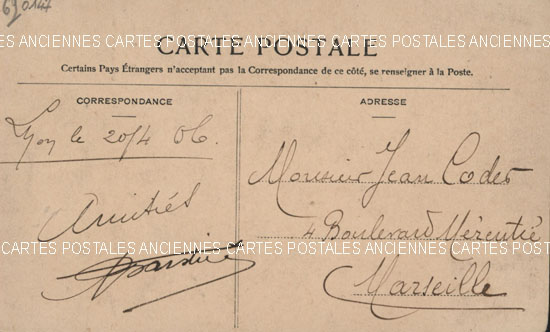 69 0147
CARTE POSTALE
ES ANCIENNES CARTES POSTALES ANCIENNES CARTES POSTALES ANCIENNES
Certains Pays Étrangers n'acceptent pas la Correspondance de ce côté, se renseigner à la Poste.
CORRESPONDANCE
Lyon le 20/4 06.
Amitiés
ADRESSE
Monsieur Jean Coder
4 Boulevard Mérentié
Marseille
ES ANCIENNES CARTES POSTALES ANCIENNES CARTES POSTALES ANCIENNES